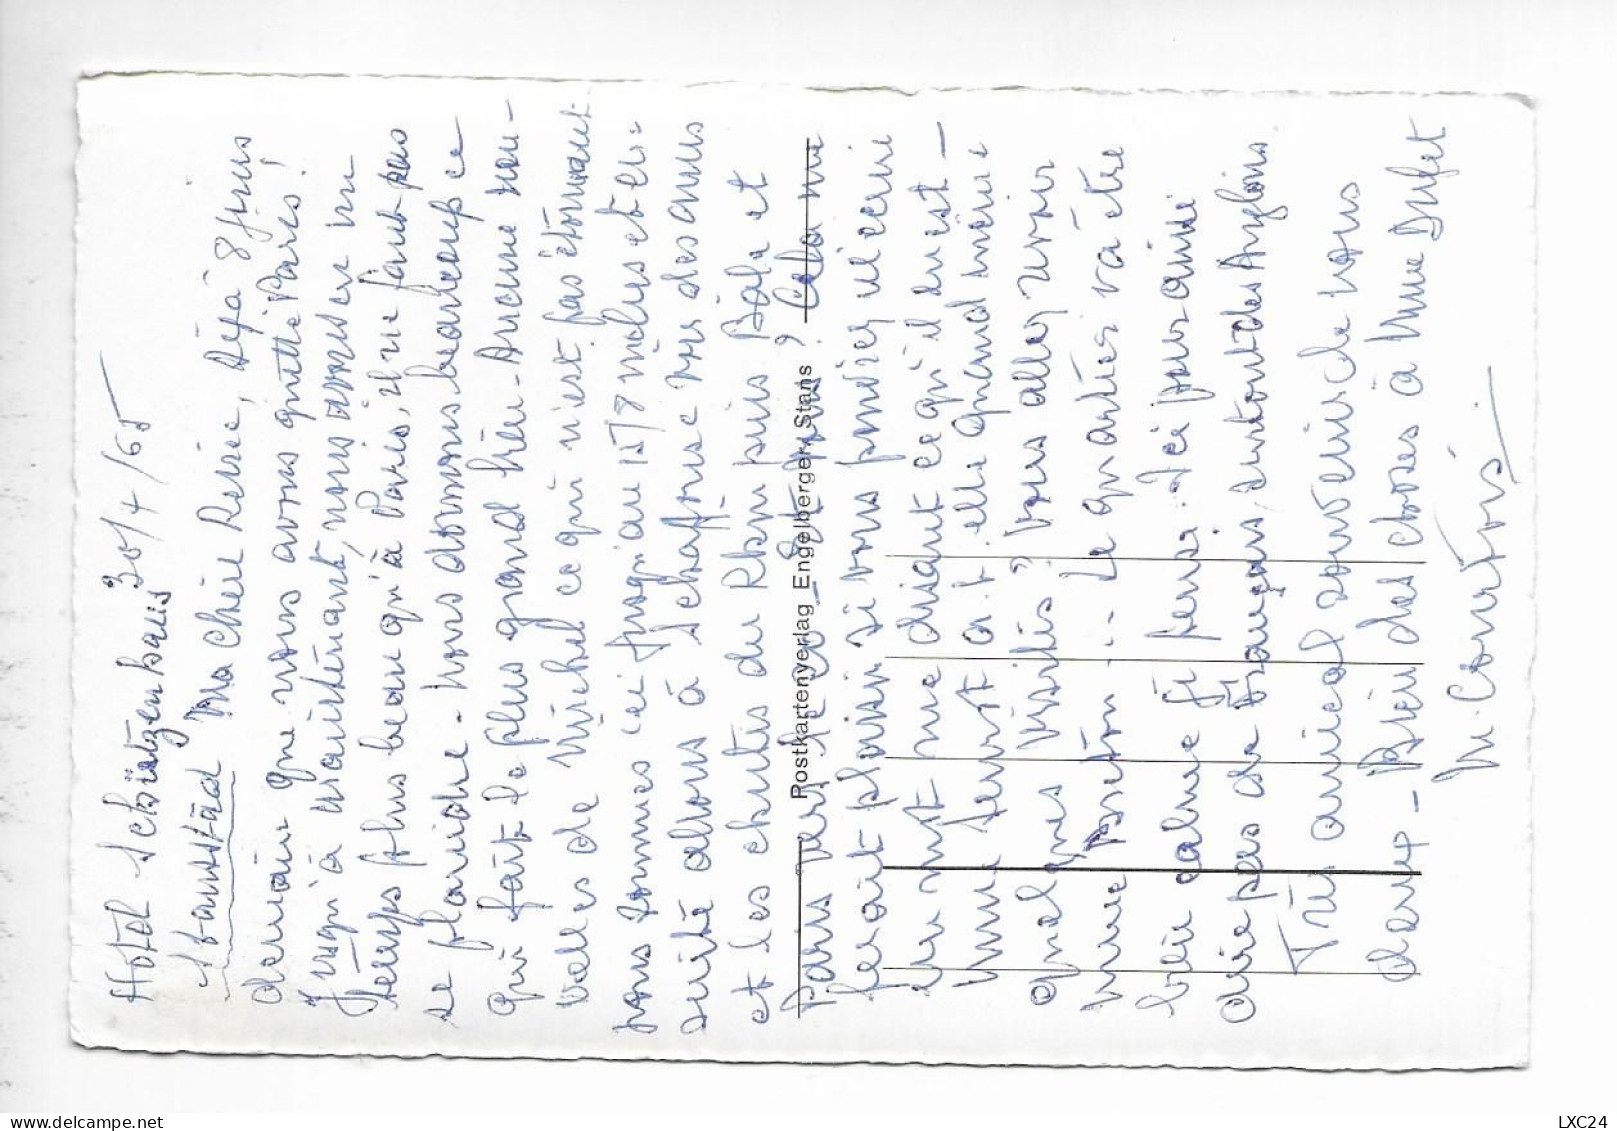 Hotel Schützenhaus 30/7/65
Stansstad Ma chère Reine, Déjà 8 jours
demain que nous avons quitté Paris!
Jusqu'à maintenant, nous avons eu un
temps plus beau qu'à Paris, il ne faut pas
se plaindre - Nous dormons beaucoup ce
qui fait le plus grand bien - Aucune nou-
velles de Michel ce qui n'est pas étonnant
nous sommes ici jusqu'au 15/8 inclus et en-
suite allons à Schaffouse voir des amis
et les chutes du Rhin puis Bâle et
Paris vers le 20 - Et vous? Cela me
ferait plaisir si vous pouviez m'écrire
un mot me disant ce qu'il en est -
Mme a-t-elle quand même
quelques visites? Vous allez vous
bien calme je pense. Ici pour ainsi
dire pas de Français, surtout des Anglais
Très amical souvenir de nous
deux - Bien des choses à Mme Dufet
M. Courtois.
Postkartenverlag Engelberger, Stans
LXC24